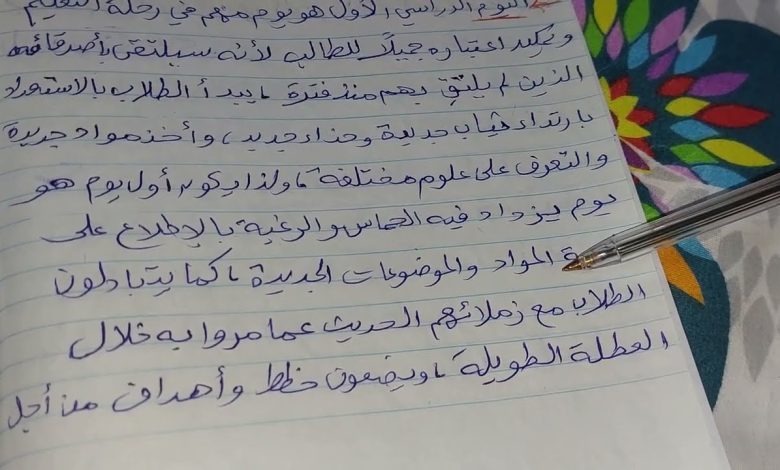 اليوم الدراسي الأول هو يوم مهم في رحلة التعليم
اعتباره جميلاً للطالب لأنه سيلتقي بأصدقائه
الذين لم يلتقِ بهم منذ فترة ، يبدأ الطلاب بالاستعداد
بارتداء ثياب جديدة وحذاء جديد ، وأخذ مواد جديدة
والتعرف على علوم مختلفة ، ولذا يكون أول يوم هو
يوم يزداد فيه الحماس والرغبة بالإطلاع على
المواد والموضوعات الجديدة ، كما يتبادلون
الطلاب مع زملائهم الحديث عما مروا به خلال
العطلة الطويلة ، ويضعون خطط وأهداف من أجل